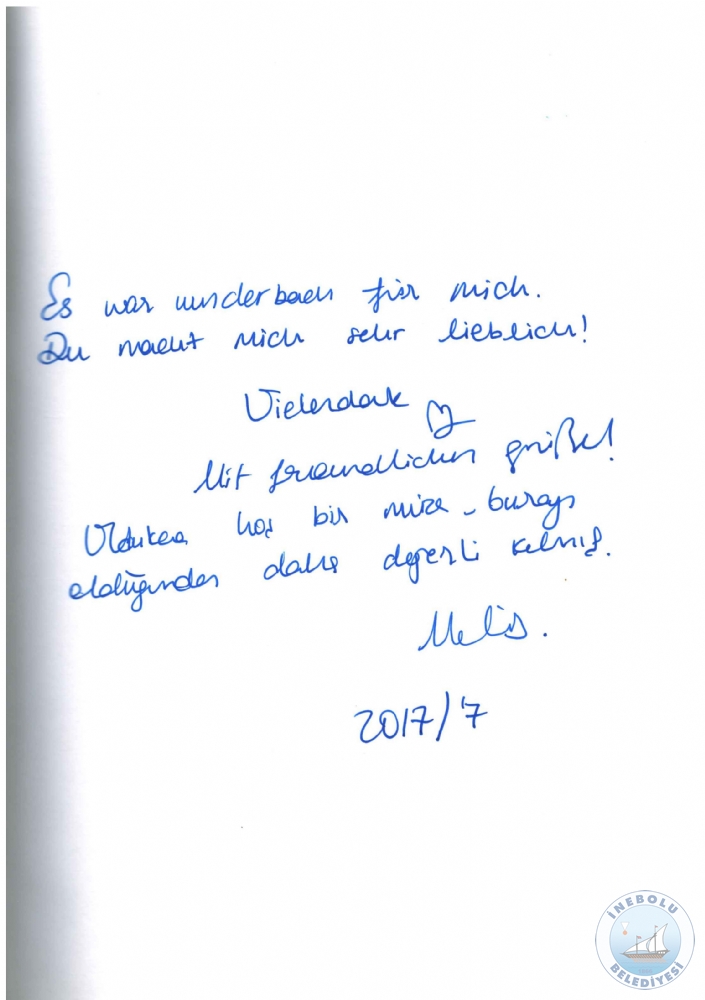 Es war wunderbach für mich.
Du macht mich sehr lieblich!
Vielendank
Mit freundlichen größe!
Oldukca hoş bir müze - burayı
olduğundan daha değerli kılmış.
Melis.
2017/7
İNEBOLU
BELEDİYESİ